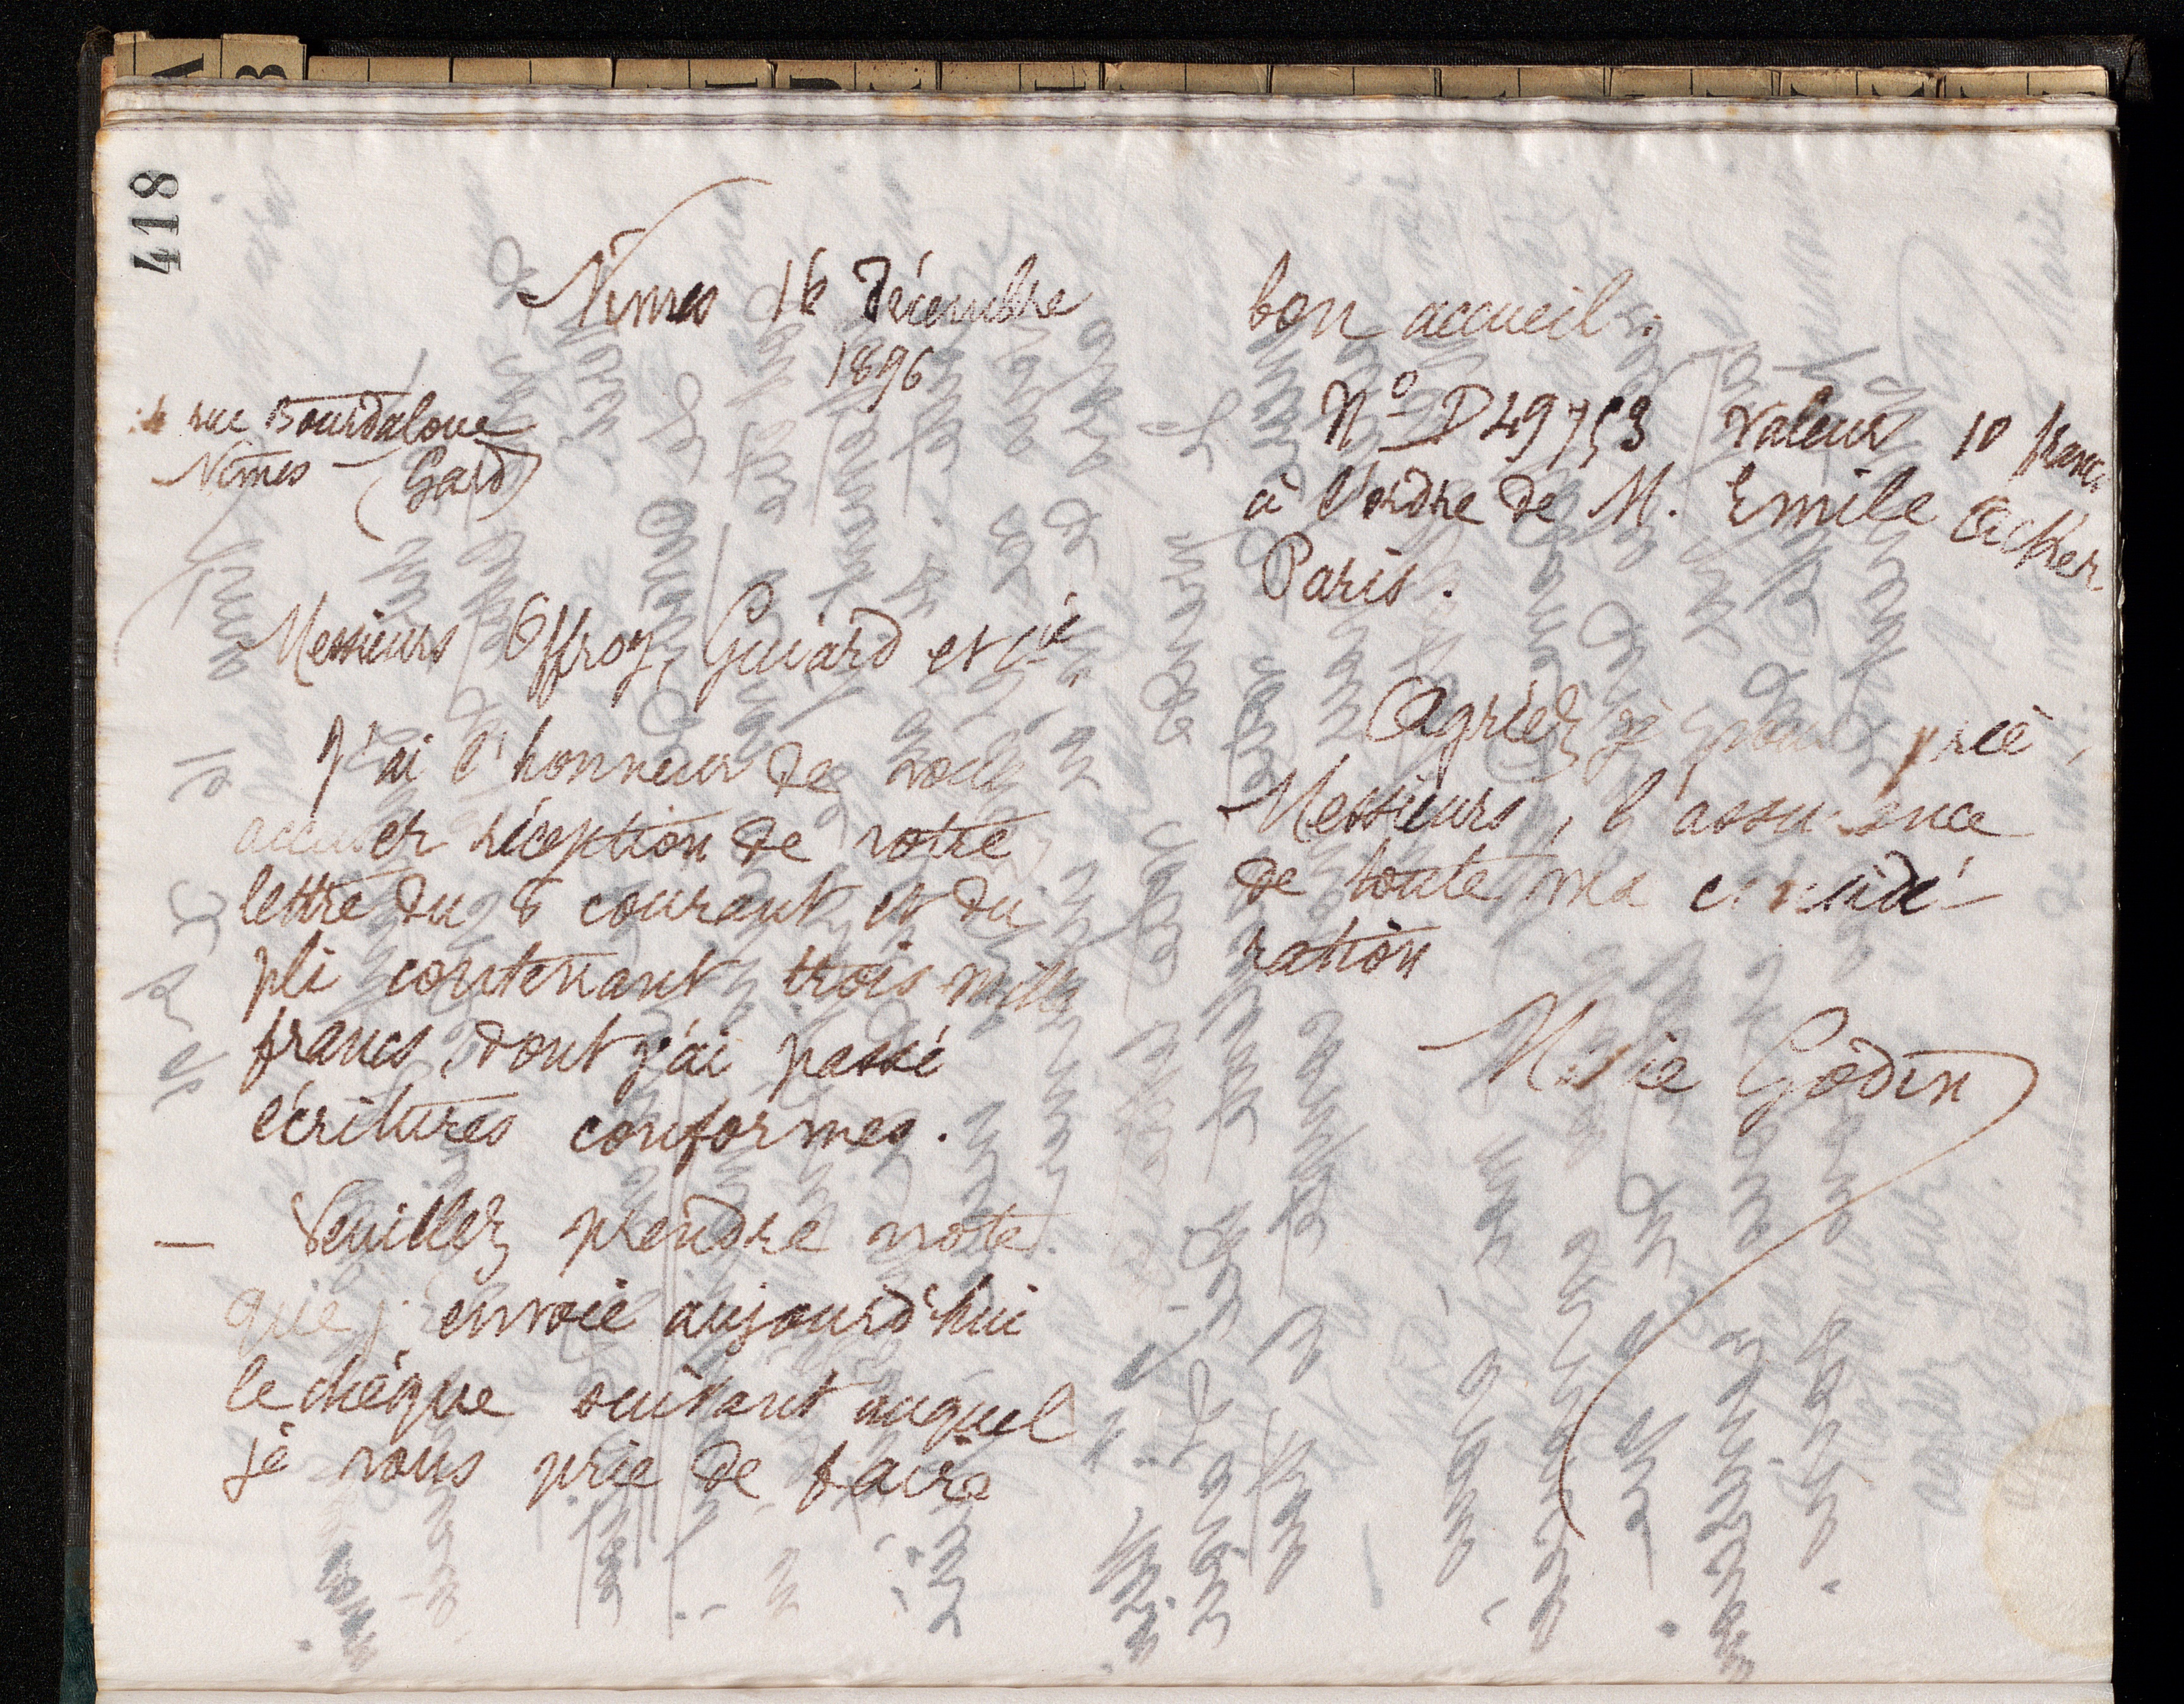 418
Nîmes 16 décembre
1896
14 rue Bourdaloue
Nîmes - (Gard)
Messieurs Offroy, Guiard et Cie,
J'ai l'honneur de vous
accuser réception de votre
lettre du 8 courant et du
pli contenant trois mille
francs, dont j'ai passé
écritures conformes.
— Veuillez prendre note
que j'envoie aujourd'hui
le chèque suivant auquel
je vous prie de faire
bon accueil.
No D 49753 valeur 10 francs
à l'ordre de M. Emile Acker
Paris.
Agréez, je vous prie,
Messieurs, l'assurance
de toute ma considé-
ration
Marie Godin